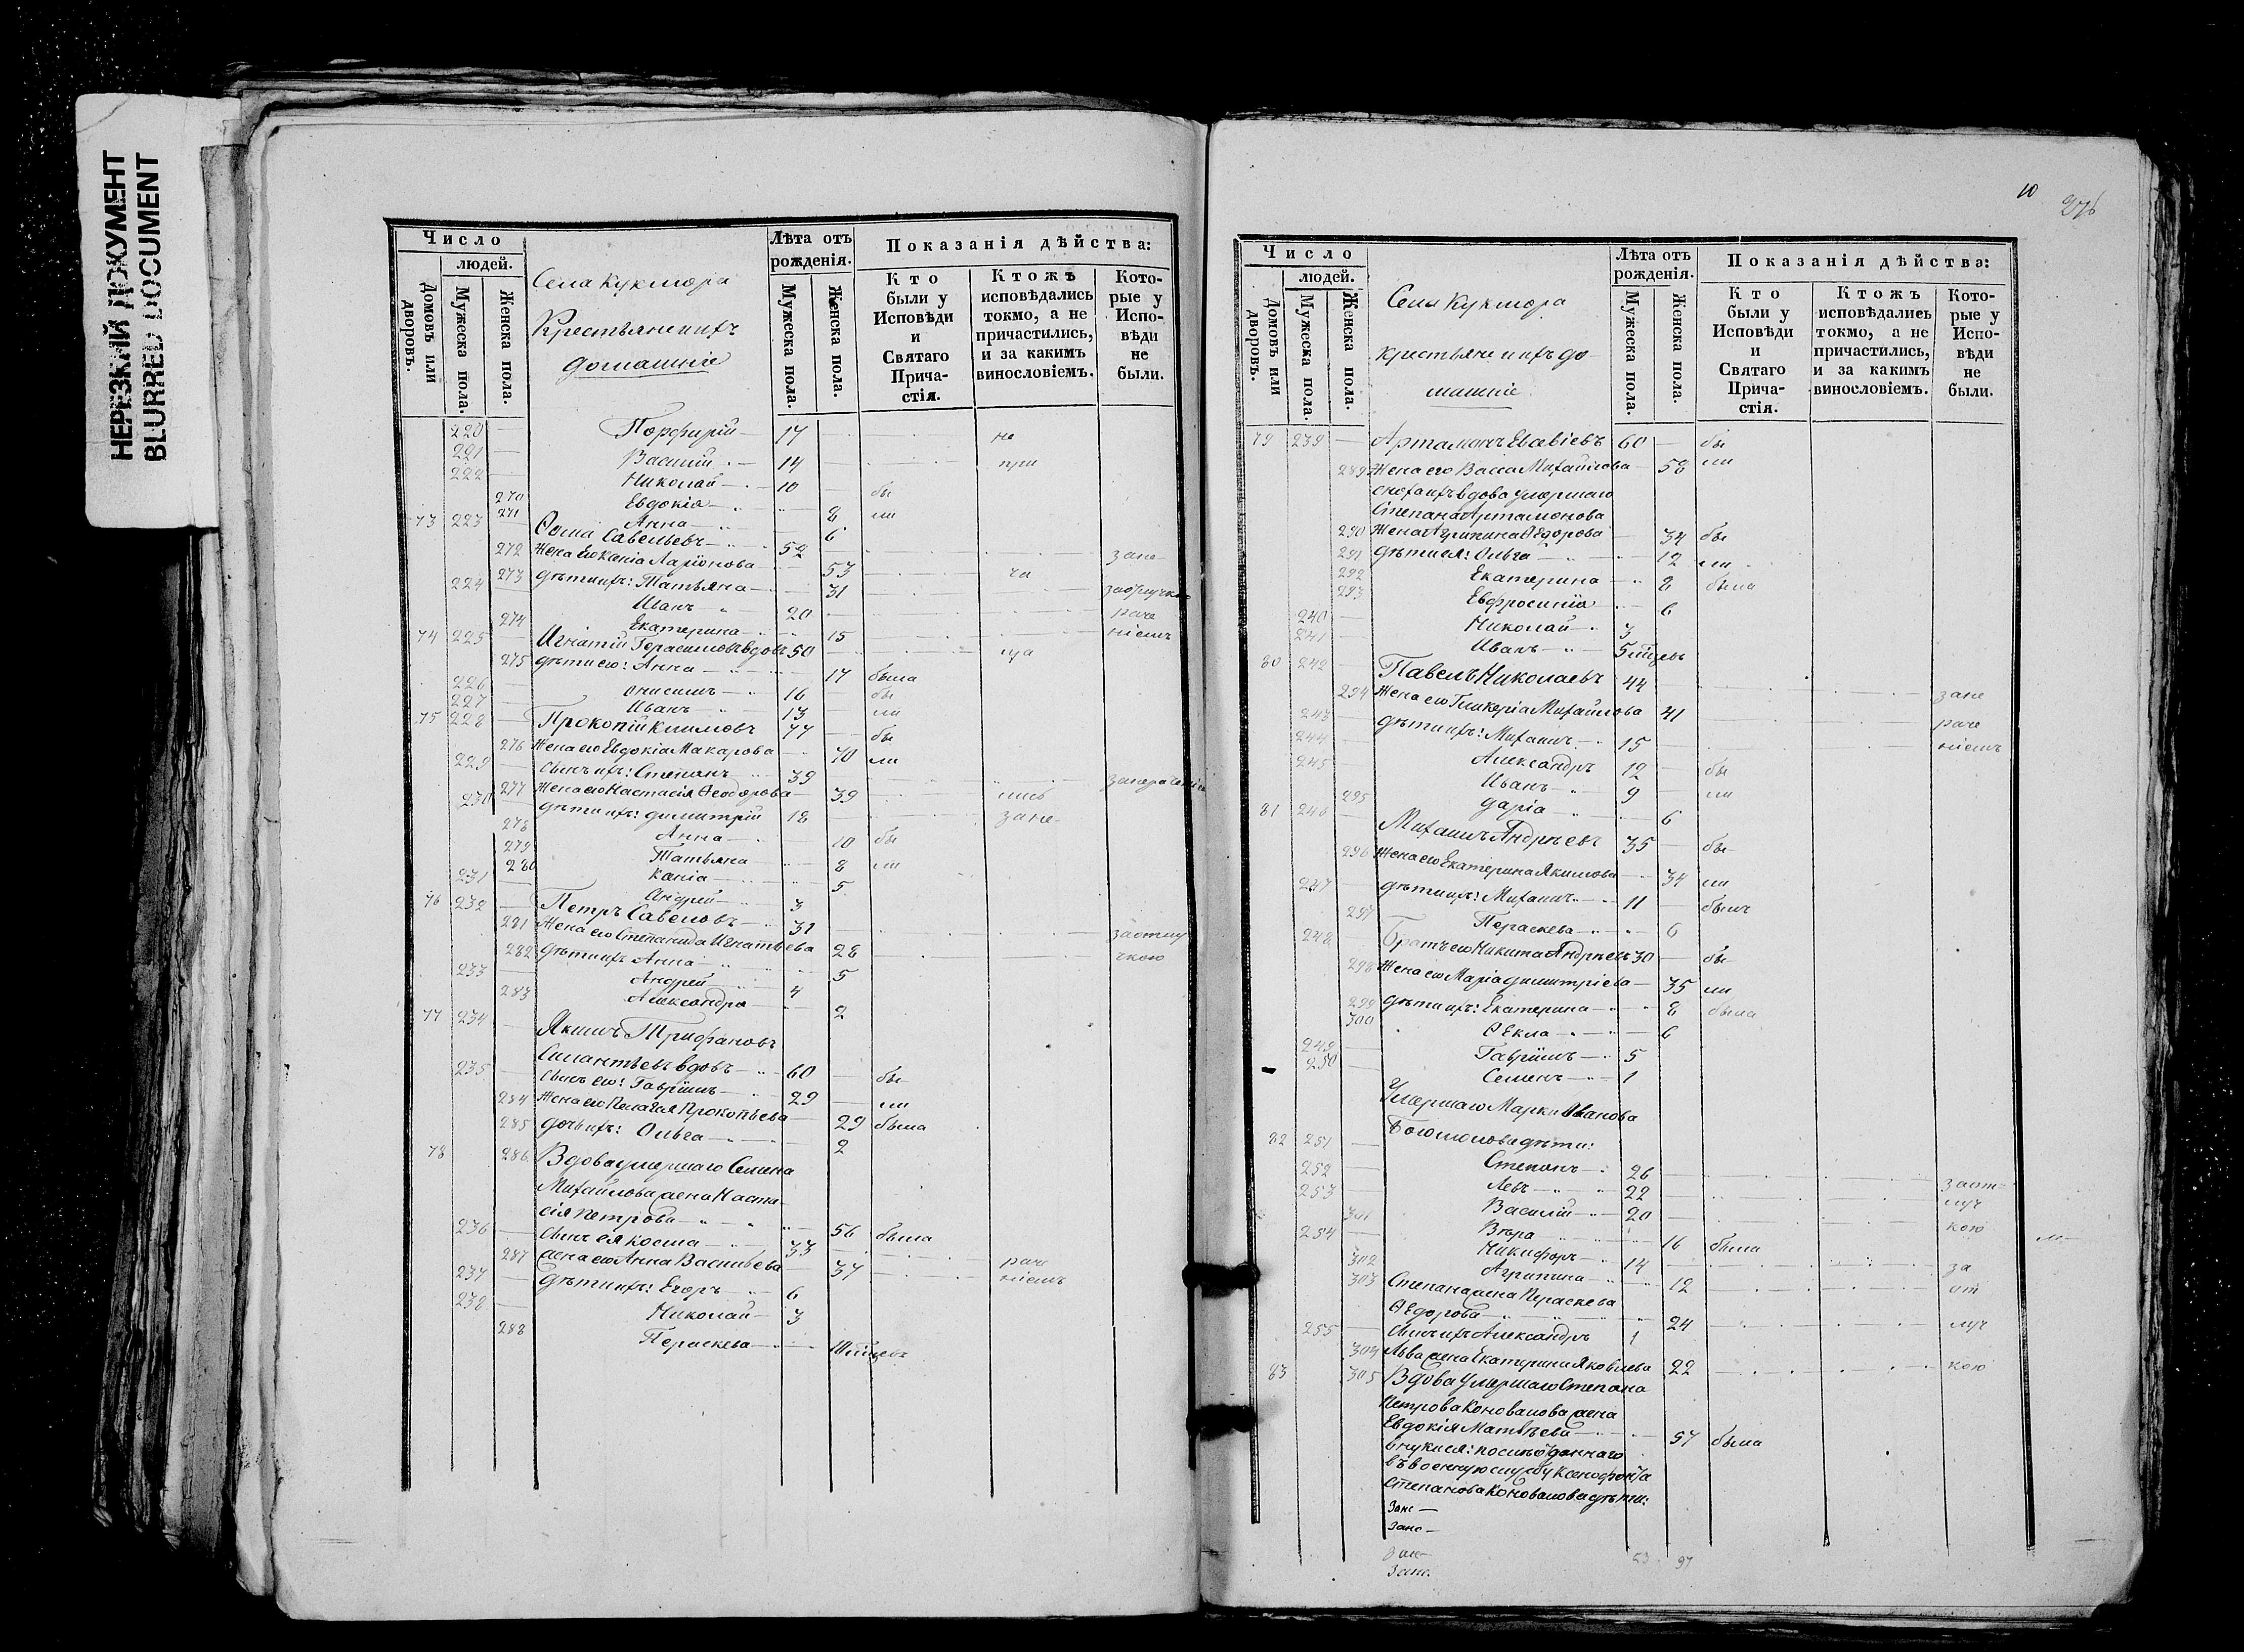 НЕРЕЗКИЙ ДОКУМЕНТ
BLURRED DOCUMENT
Число
людей.
Домовъ или дворовъ.
Мужеска пола.
Женска пола.
Села Кукмора
Крестьяне и ихъ
домашніе
Лѣта отъ рожденія.
Мужеска пола.
Женска пола.
Показанія дѣйства:
Кто были у Исповѣди и Святаго Прича-стія.
Ктожъ исповѣдались токмо, а не причастились, и за какимъ винословіемъ.
Кото-рые у Испо-вѣди не были.
220 — Порфирій — 17 не
221 — Василій — 14 при
222 — Николай — 10 бы
270 Евдокія — 8 ли
271 Анна — 6
73 223 Ѳома Савельевъ — 52 зане
272 Жена его Ксенія Ларіонова 53 ча
273 дѣти ихъ: Татьяна — 31
224 Иванъ 20 раче
274 Екатерина 15 ніемъ
74 225 Игнатій Герасимовъ вдовъ 50
275 дѣти его: Анна 17 была
226 Онисимъ 16 бы
227 Иванъ 13 ли
75 228 Прокопій Климовъ 77 бы
276 Жена его Евдокія Макарова 70 ли
229 сынъ ихъ: Степанъ 39
277 Жена его Настасія Ѳеодорова 39 лись
230 дѣти ихъ: Димитрій 18 зане-
278 Анна 10 бы
279 Татьяна 8 ли
280 Ксенія 5
231 Андрей 3
76 232 Петръ Савеловъ 31
281 Жена его Степанида Игнатьева 28
282 дѣти ихъ Анна 5
233 Андрей 4
283 Александра 2
77 234 Якимъ Трифановъ
Силантьевъ вдовъ 60 бы
235 сынъ его: Гавріилъ 29 ли
284 Жена его Пелагея Прокопьева 29 была
285 дочь ихъ: Ольга 2
78 286 Вдова умершаго Семена
Михайлова жена Наста-
сія Петрова 56 была
236 сынъ ея Косма 33 раче
287 жена его Анна Васильева 37 ніемъ
237 дѣти ихъ: Егоръ 6
238 Николай 3
288 Параскева
10
276
Число
людей.
Домовъ или дворовъ.
Мужеска пола.
Женска пола.
Села Кукмора
крестьяне и ихъ до-
машніе
Лѣта отъ рожденія.
Мужеска пола.
Женска пола.
Показанія дѣйства:
Кто были у Исповѣди и Святаго Прича-стія.
Ктожъ исповѣдались токмо, а не причастились, и за какимъ винословіемъ.
Кото-рые у Испо-вѣди не были.
79 239 60 бы
289 Жена его Васса Михайлова 58 ли
сноха ихъ вдова умершаго
Степана Артамонова
290 Жена Агрипина Ѳедорова 34 бы
291 дѣти ея: Ольга 12 ли
292 Екатерина 8 была
293 Евфросинія 6
240 Николай 3
241 Иванъ
80 242 Павелъ Николаевъ 44 зане
294 Жена его Гликерія Михайлова 41 раче
243 дѣти ихъ: Михаилъ 15 ніемъ
244 Александръ 12 бы
245 Иванъ 9 ли
295 Дарія 6
81 246 Михаилъ Андрѣевъ 35 бы
296 Жена его Екатерина Якимова 34 ли
247 дѣти ихъ: Михаилъ 11 былъ
297 Параскева 6
248 Братъ его Никита Андрѣевъ 30 бы
298 Жена его Марія Димитріева 35 ли
299 дѣти ихъ: Екатерина 8 была
300 Ѳекла 6
249 Гавріилъ 5
250 Семенъ 1
Умершаго Марка Иванова
82 251 Богомолова дѣти:
Степанъ 26
252 Левъ 22
253 Василій 20 кою
301 Вѣра 16 была
254 Никифоръ 14 за
302 Агрипина 12 от
303 Степана жена Параскева
Ѳедорова 24 луч
255 сынъ ихъ Александръ 1
304 Льва жена Екатерина Яковлева 22 кою
83 305 Вдова умершаго Степана
Петрова Коновалова жена
Евдокія Матвѣева 57 была
внуки ея: посль отданнаго
въ военную службу Ксенофонта
Степанова Коновалова дѣти:
Зане —
Зане —
53 97